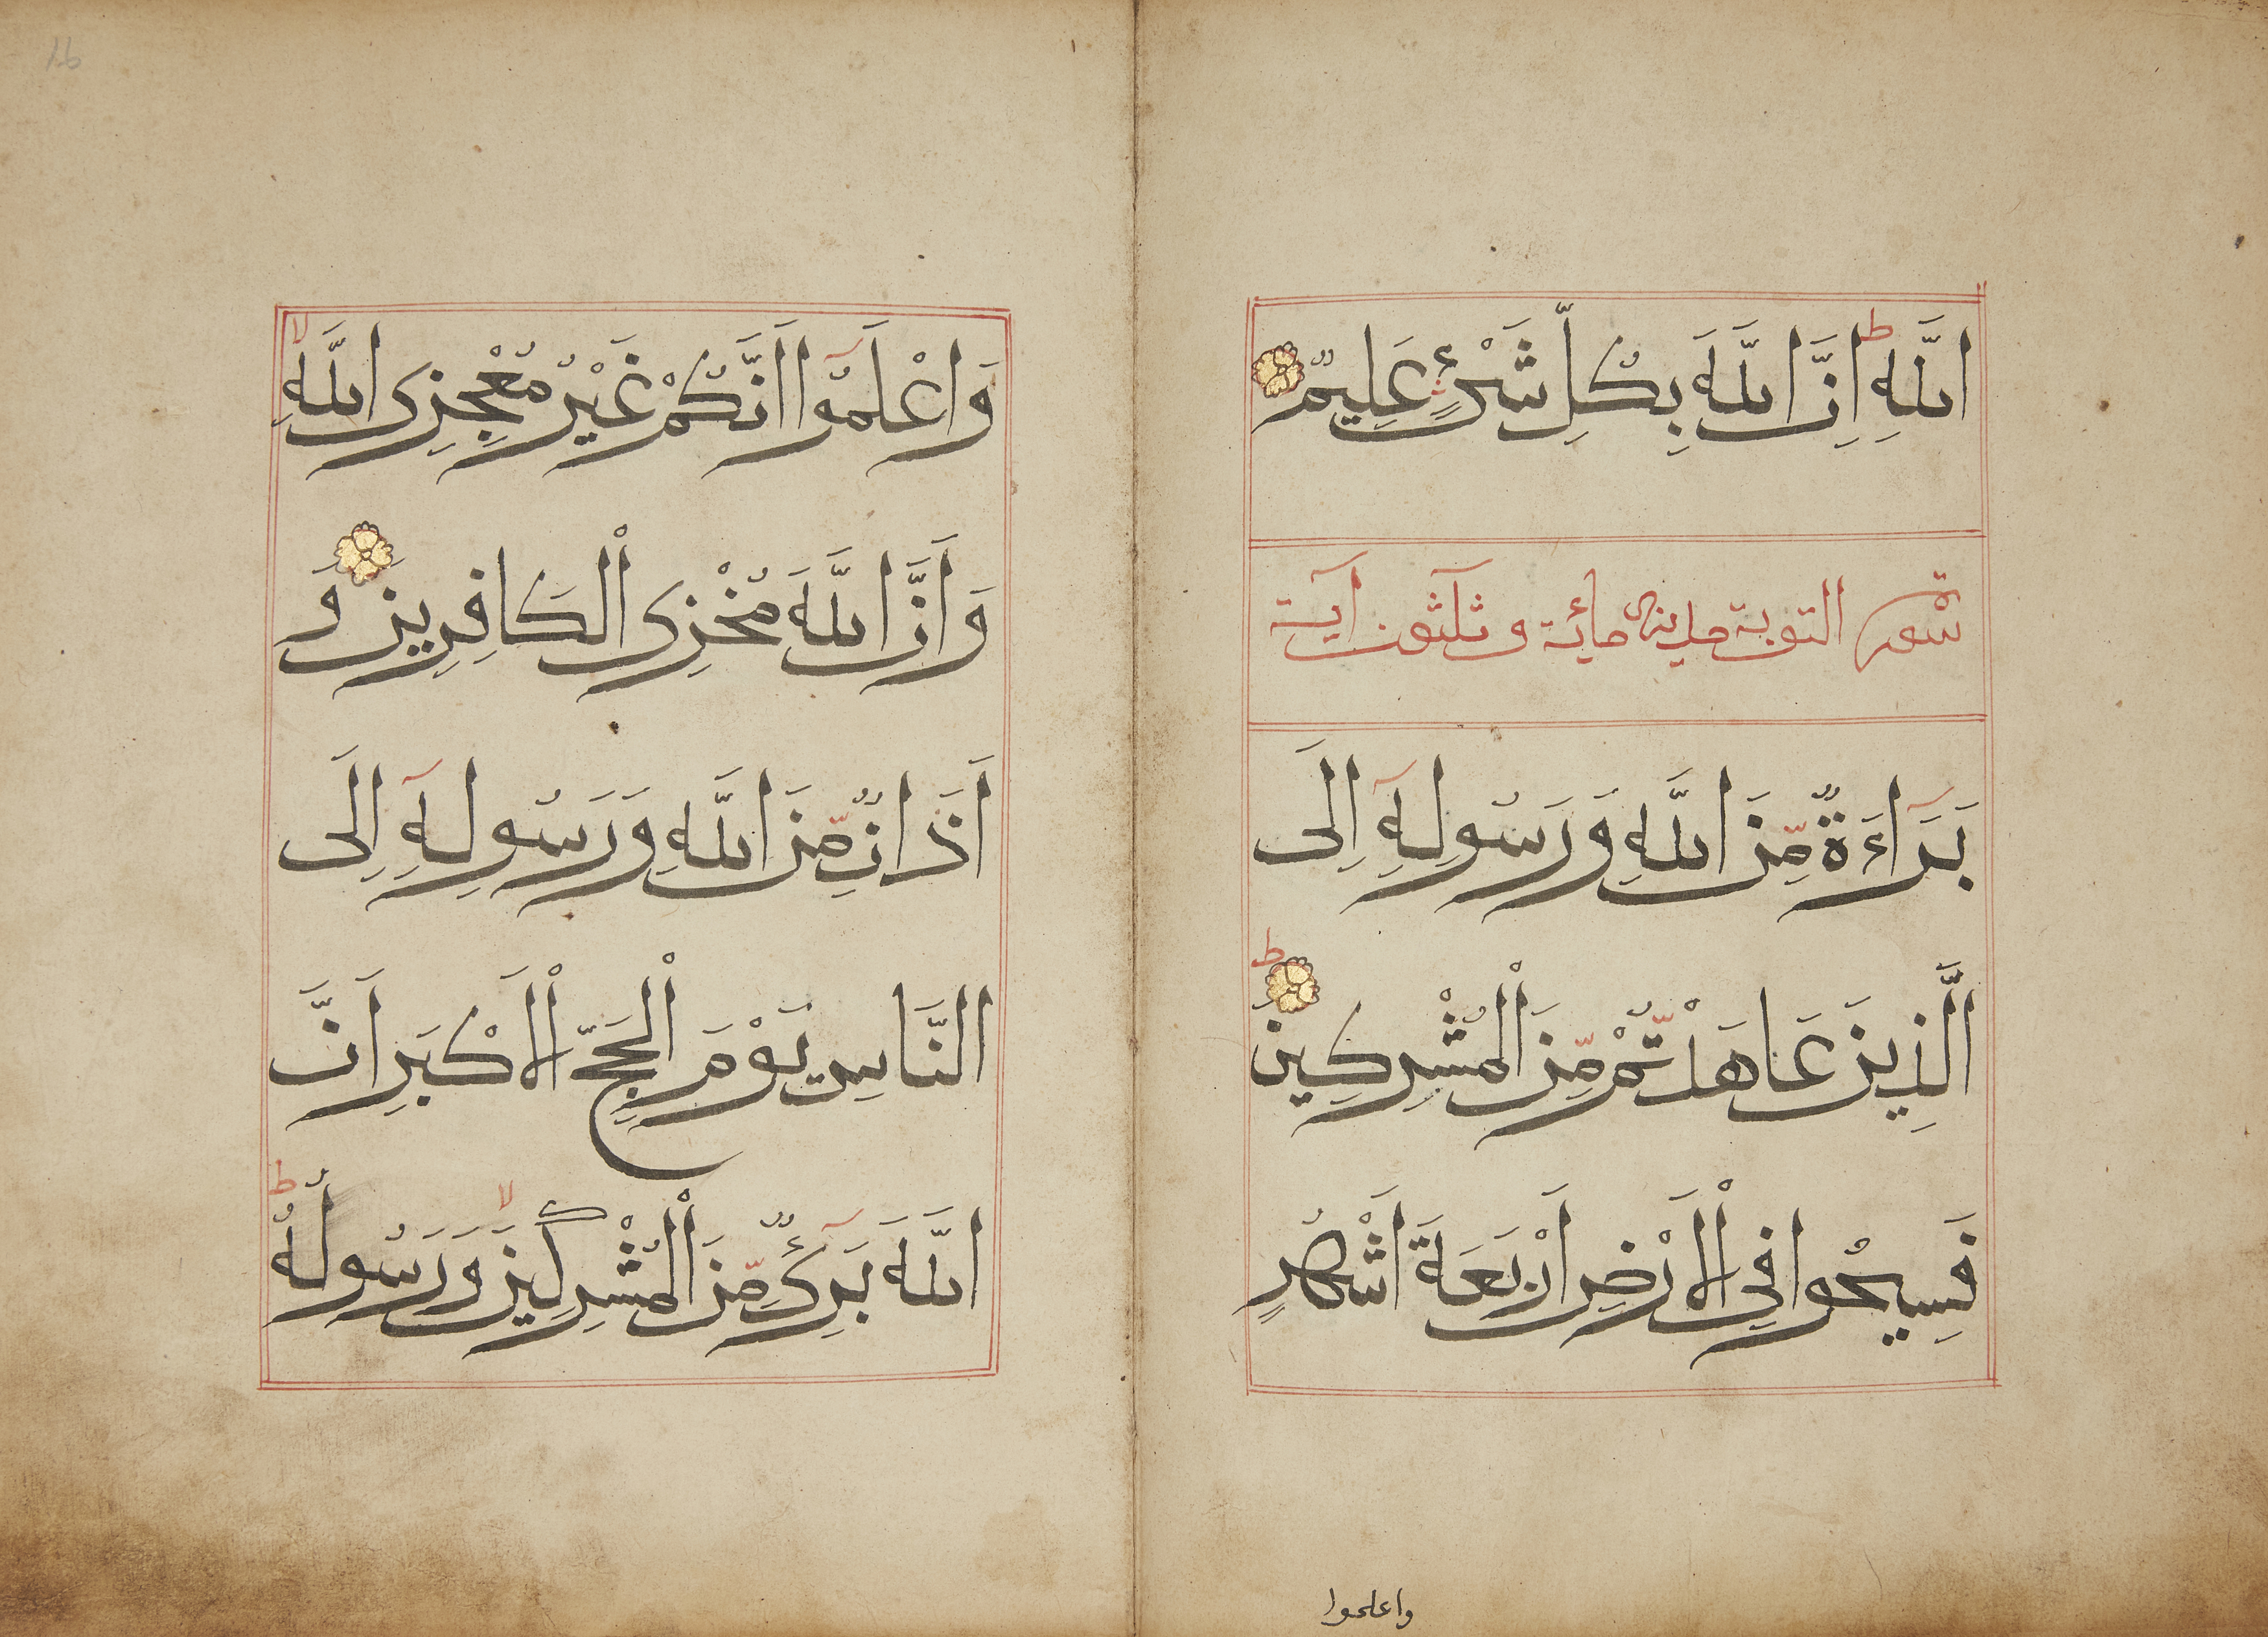 اللَّهِ ط اِنَّ اللَّهَ بِكُلِّ شَىْءٍ عَلِيمٌ
سورة التوبة مدينى مائة وثلثون آية
بَرَآءَةٌ مِّنَ اللَّهِ وَرَسُولِهِٓ اِلَى
الَّذِينَ عَاهَدْتُّمْ مِّنَ الْمُشْرِكِينَ ط
فَسِيحُوا فِى الْاَرْضِ اَرْبَعَةَ اَشْهُرٍ
واعلموا
وَاعْلَمُوٓا اَنَّكُمْ غَيْرُ مُعْجِزِى اللَّهِ لا
وَاَنَّ اللَّهَ مُخْزِى الْكَافِرِينَ وَ
اَذَانٌ مِّنَ اللَّهِ وَرَسُولِهِٓ اِلَى
النَّاسِ يَوْمَ الْحَجِّ الْاَكْبَرِ اَنَّ
اللَّهَ بَرِٓىءٌ مِّنَ الْمُشْرِكِينَ لا وَرَسُولُهُ ط
16